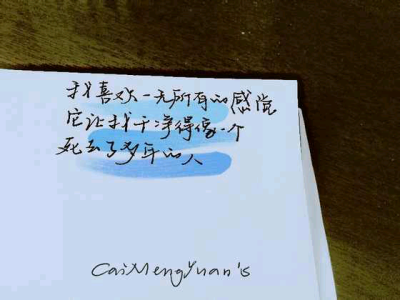 我喜欢一无所有的感觉
它让我干净得像一个
死去了多年的人
CaiMengYuan's